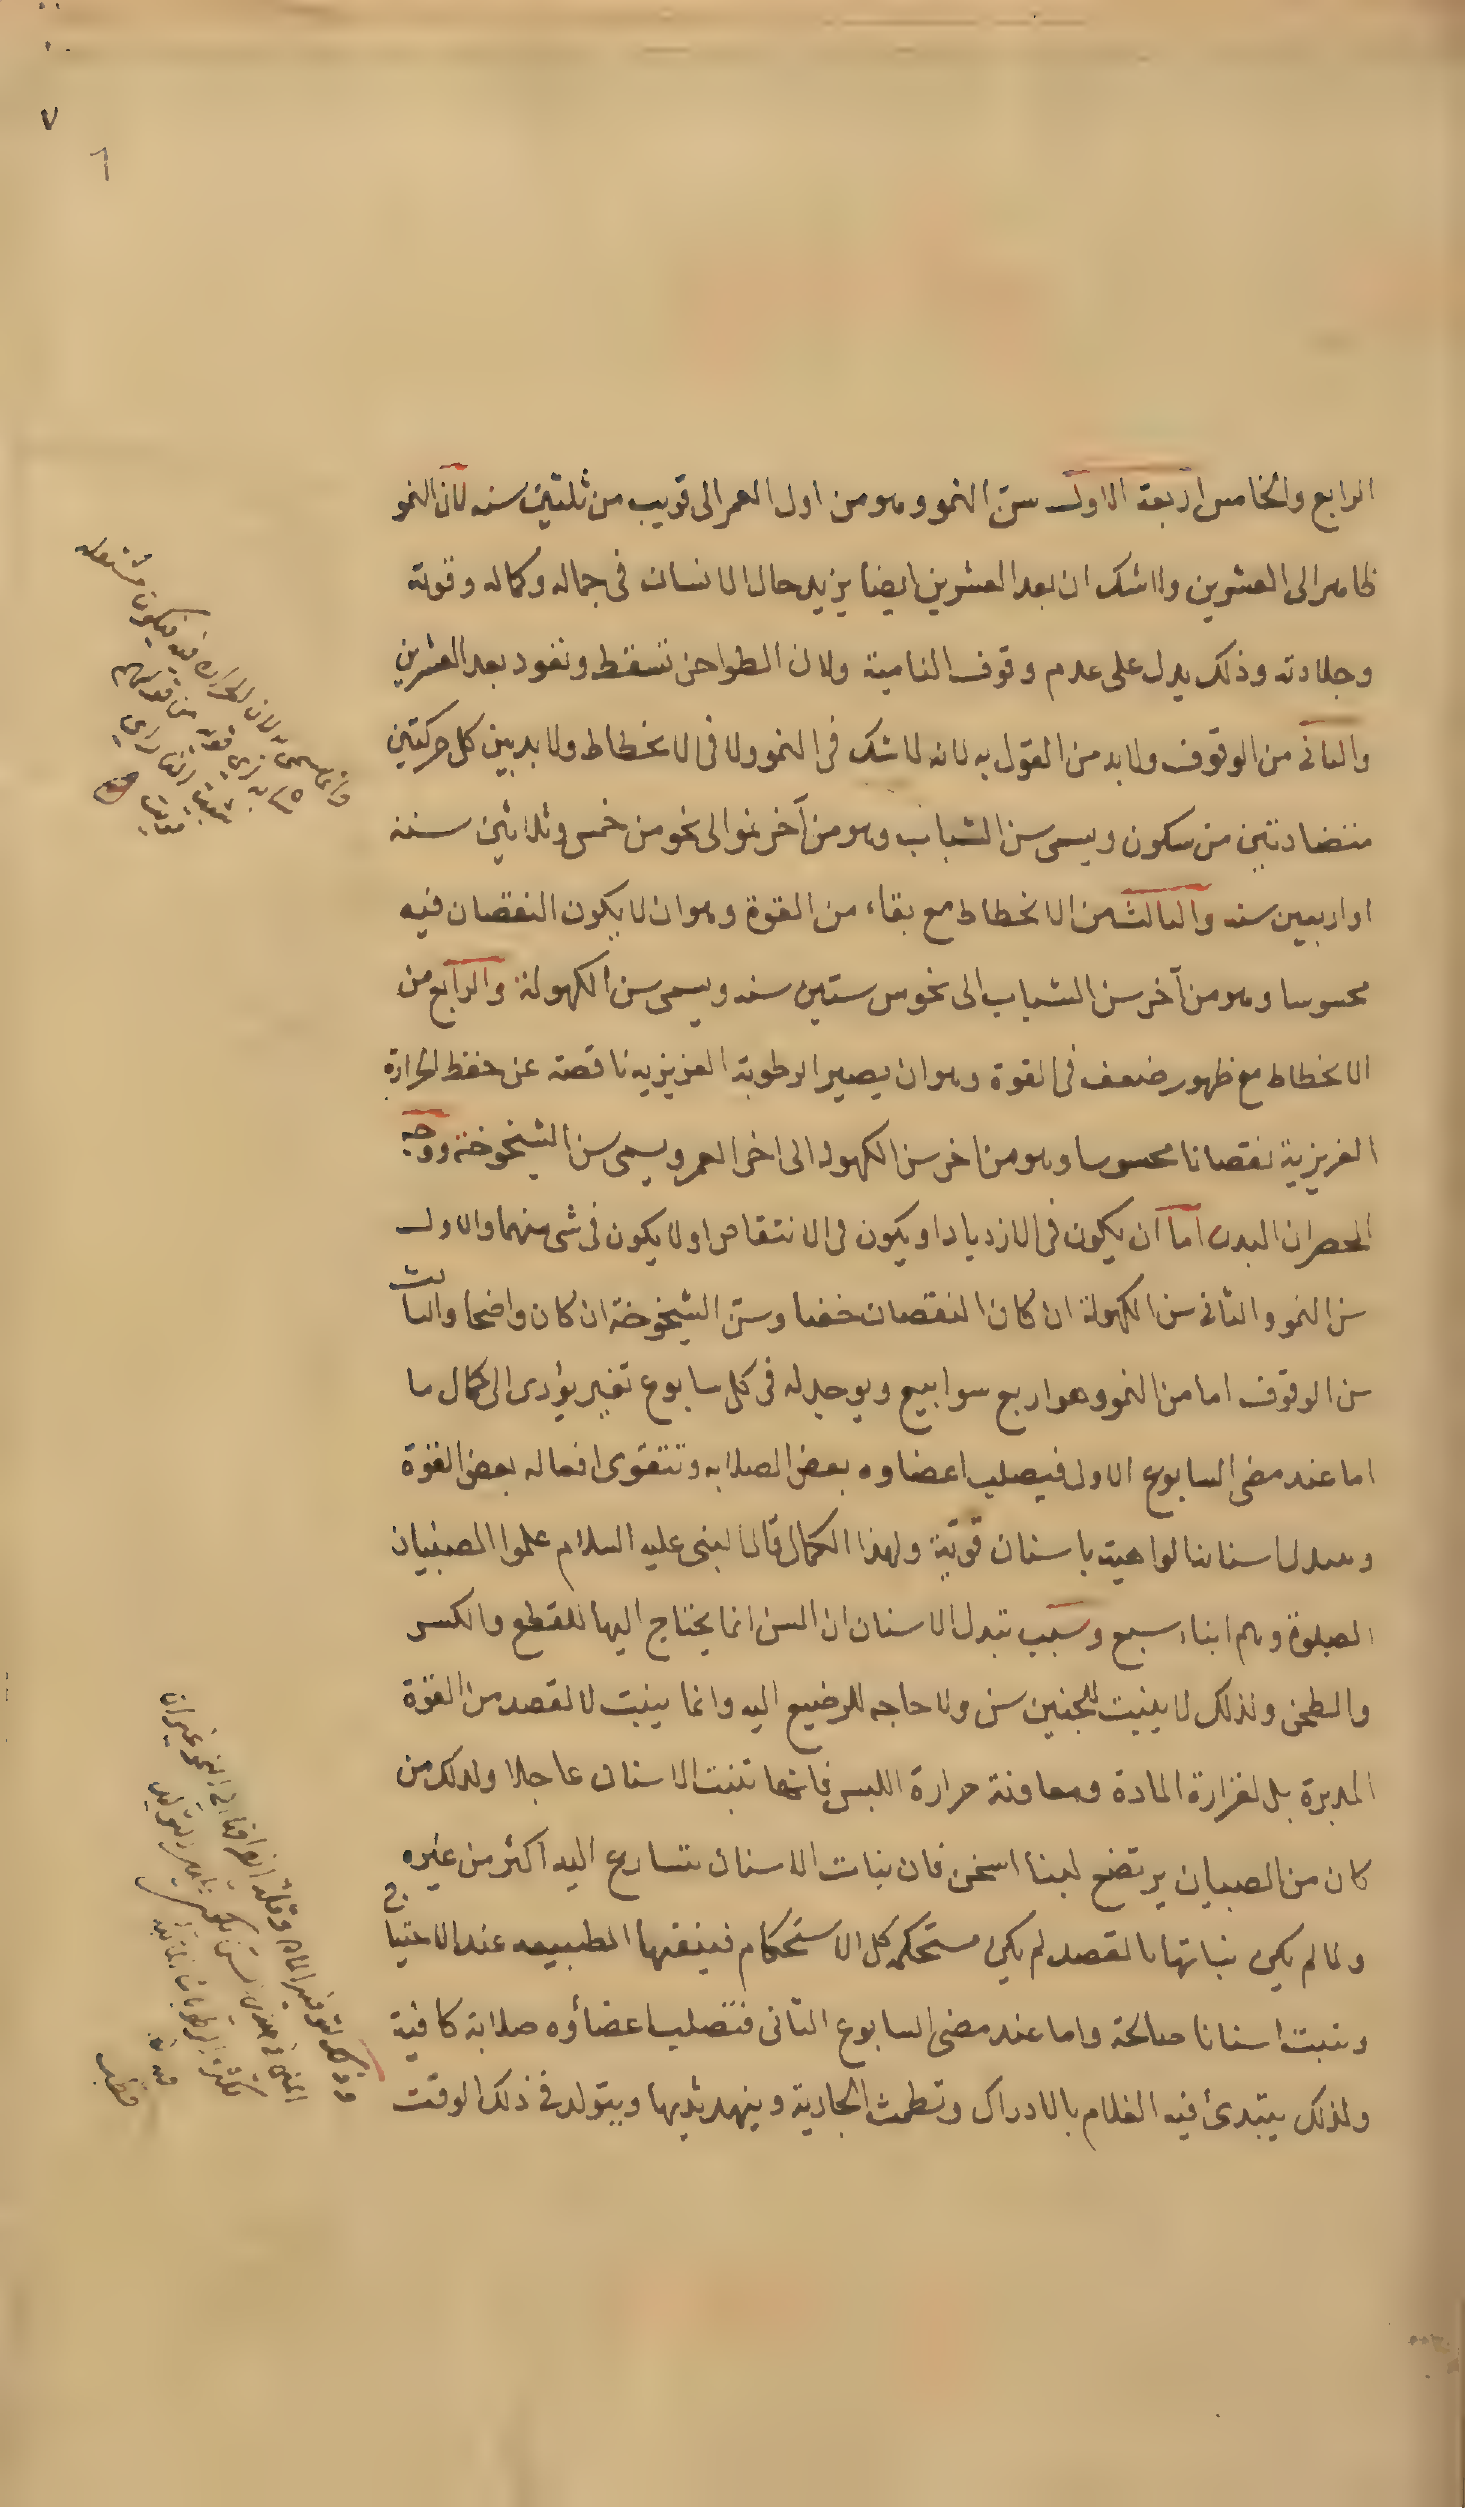 ٧
٦
الرابع والخامس اربعة الاول سن النمو وهو من اول العمر الى قريب من ثلثين سنه لان النمو
ظاهر الى العشرين ولا شك ان بعد العشرين ايضا يزيد حال الانسان فى جماله وكماله وقوته
وجلادته وذلك يدل على عدم وقوف النامية ولان الطواحن تسقط وتعود بعد العشرين
والثانى من الوقوف ولابد من القول به لانه لا شك فى النمو ولا فى الانحطاط ولابد بين كل حركتين
متضادتين من سكون ويسمى سن الشباب وهو من آخر نمو الى نحو من خمس وثلاثين سنة
او اربعين سنه والثالث من الانحطاط مع بقاء من القوة وهو ان لا يكون النقصان فيه
محسوسا وهو من آخر سن الشباب الى نحو من ستين سنه ويسمى سن الكهولة والرابع من
الانحطاط مع ظهور ضعف فى القوة وهو ان يصير الرطوبة الغريزيه ناقصة عن حفظ الحرارة
الغريزية نقصانا محسوسا وهو من اخر سن الكهوله الى اخر العمر ويسمى سن الشيخوخة ووجه
الحصر ان البدن اما ان يكون فى الازدياد او يكون فى الانتقاص او لا يكون فى شى منهما والاول
سن النمو والثانى سن الكهولة ان كان النقصان خفيا وسن الشيخوخة ان كان واضحا والثالث
سن الوقوف اما من النمو وهو اربع سوابيع ويوجد له فى كل سابوع تغير يؤدى الى كمال ما
اما عند مضى السابوع الاول فيصلب اعضاوه بعض الصلابه وتتقوى افعاله بعض القوة
وتبدل اسنانه الواهية باسنان قوية ولهذا الكمال قال النبى عليه السلام علموا الصبيان
الصلوة وهم ابناء سبع وسبب تبدل الاسنان ان السن انما يحتاج اليها للقطع والكسر
والطحن ولذلك لا ينبت للجنين سن ولا حاجه للرضيع اليه وانما ينبت لا لقصد من القوة
المدبرة بل لغزارة المادة ومعاونة حرارة اللبن فانها تنبت الاسنان عاجلا ولذلك من
كان من الصبيان يرتضع لبنا اسخن فان نبات الاسنان تتسارع اليه اكثر من غيره
ولما لم يكن نباتها بالقصد لم يكن مستحكمه كل الاستحكام فينفيها الطبيعه عند الاحتياج
وتنبت اسنانا صالحة واما عند مضى السابوع الثانى فتصلب اعضاؤه صلابة كافية
ولذلك يبتدئ فيه الغلام بالادراك وتطمث الجارية وينهد ثديها ويتولد فى ذلك الوقت
وانما سمى به لان الحراره فيه فيكون مشتعله